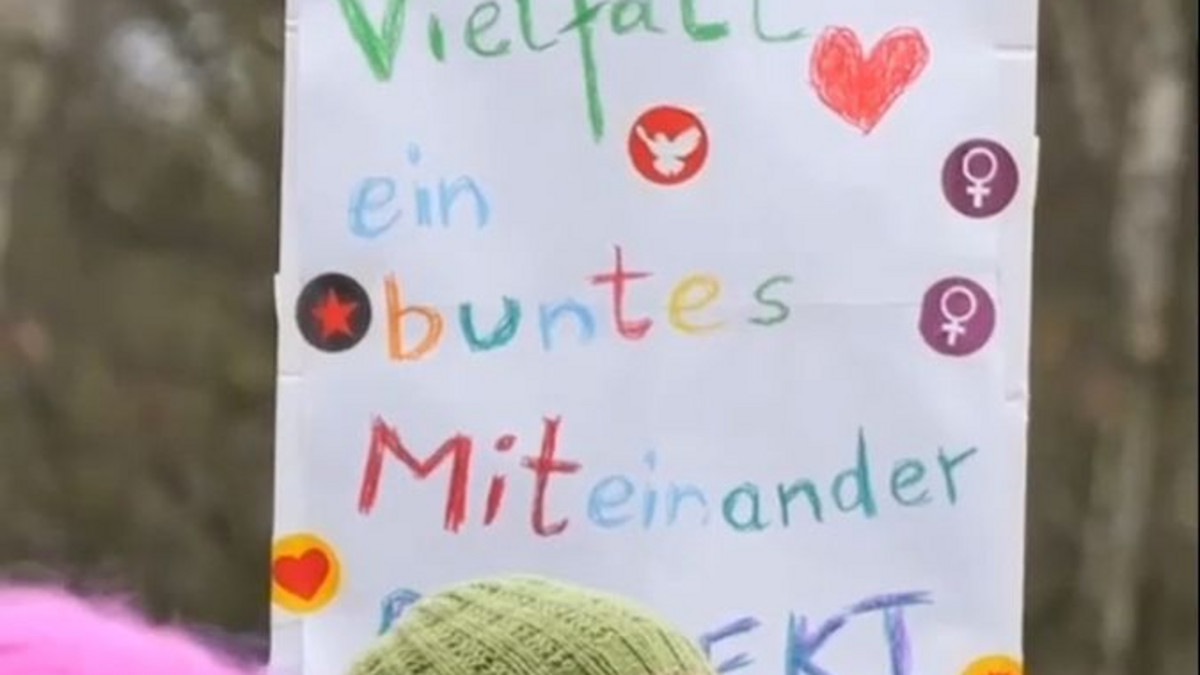 Vielfalt
ein
buntes
Miteinander